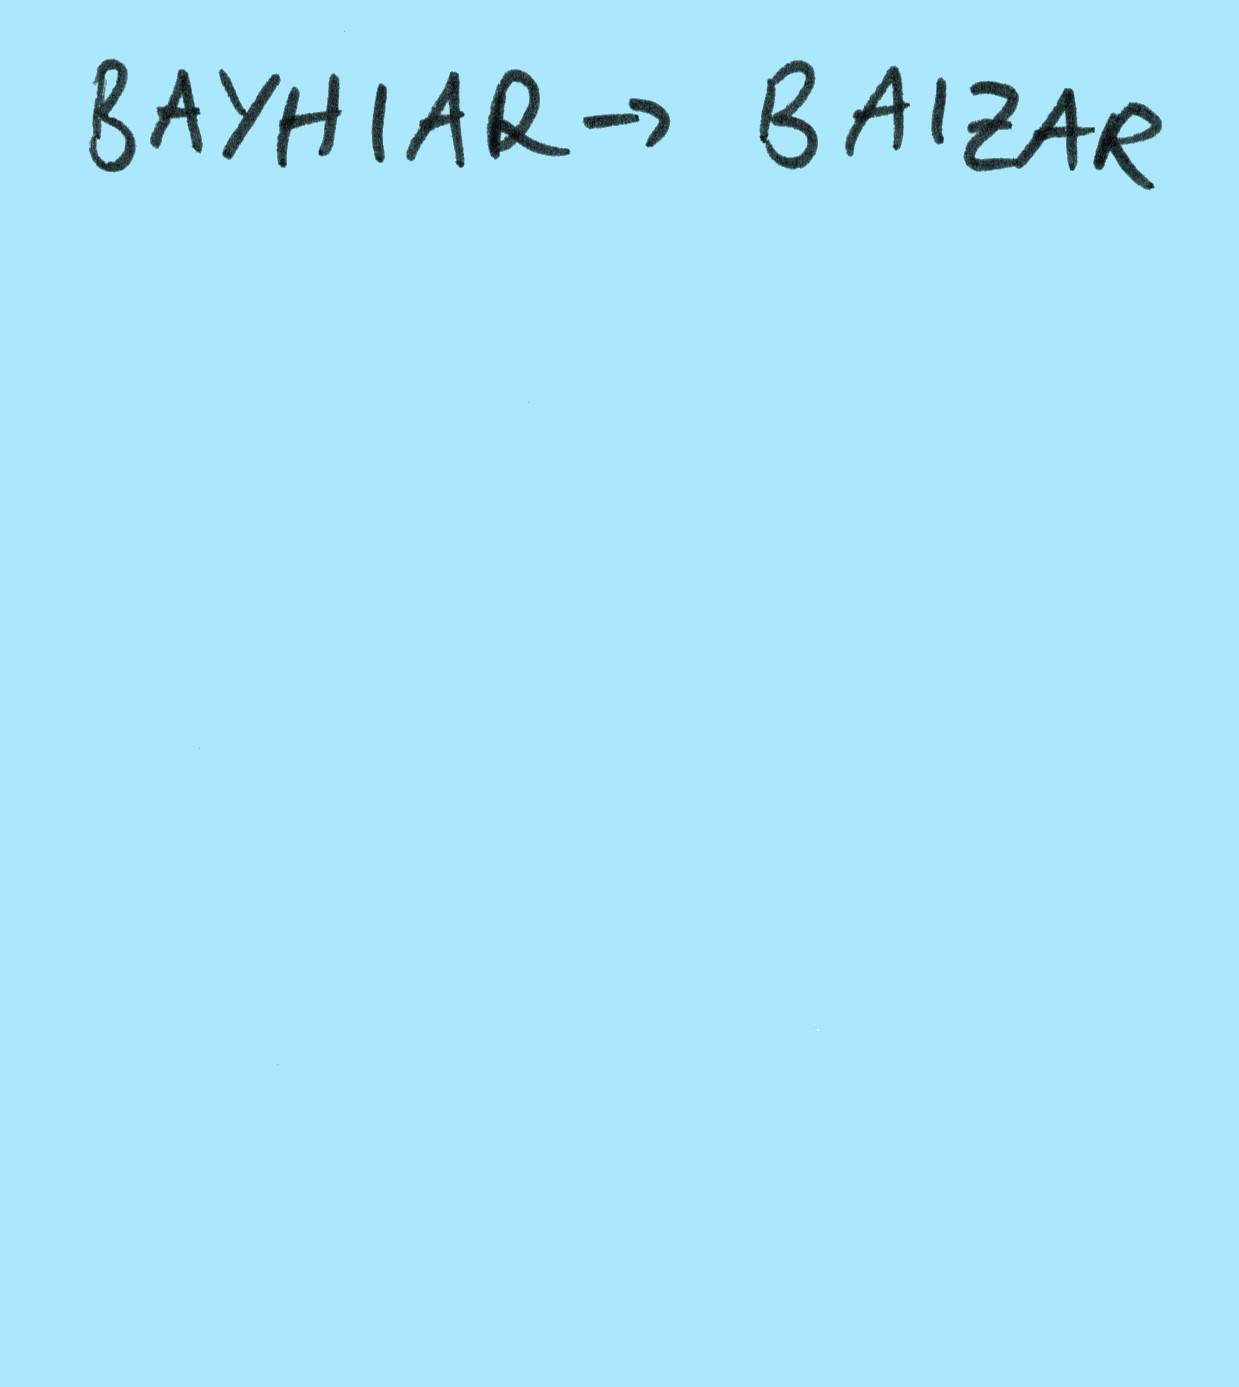 BAYHIAR → BAIZAR